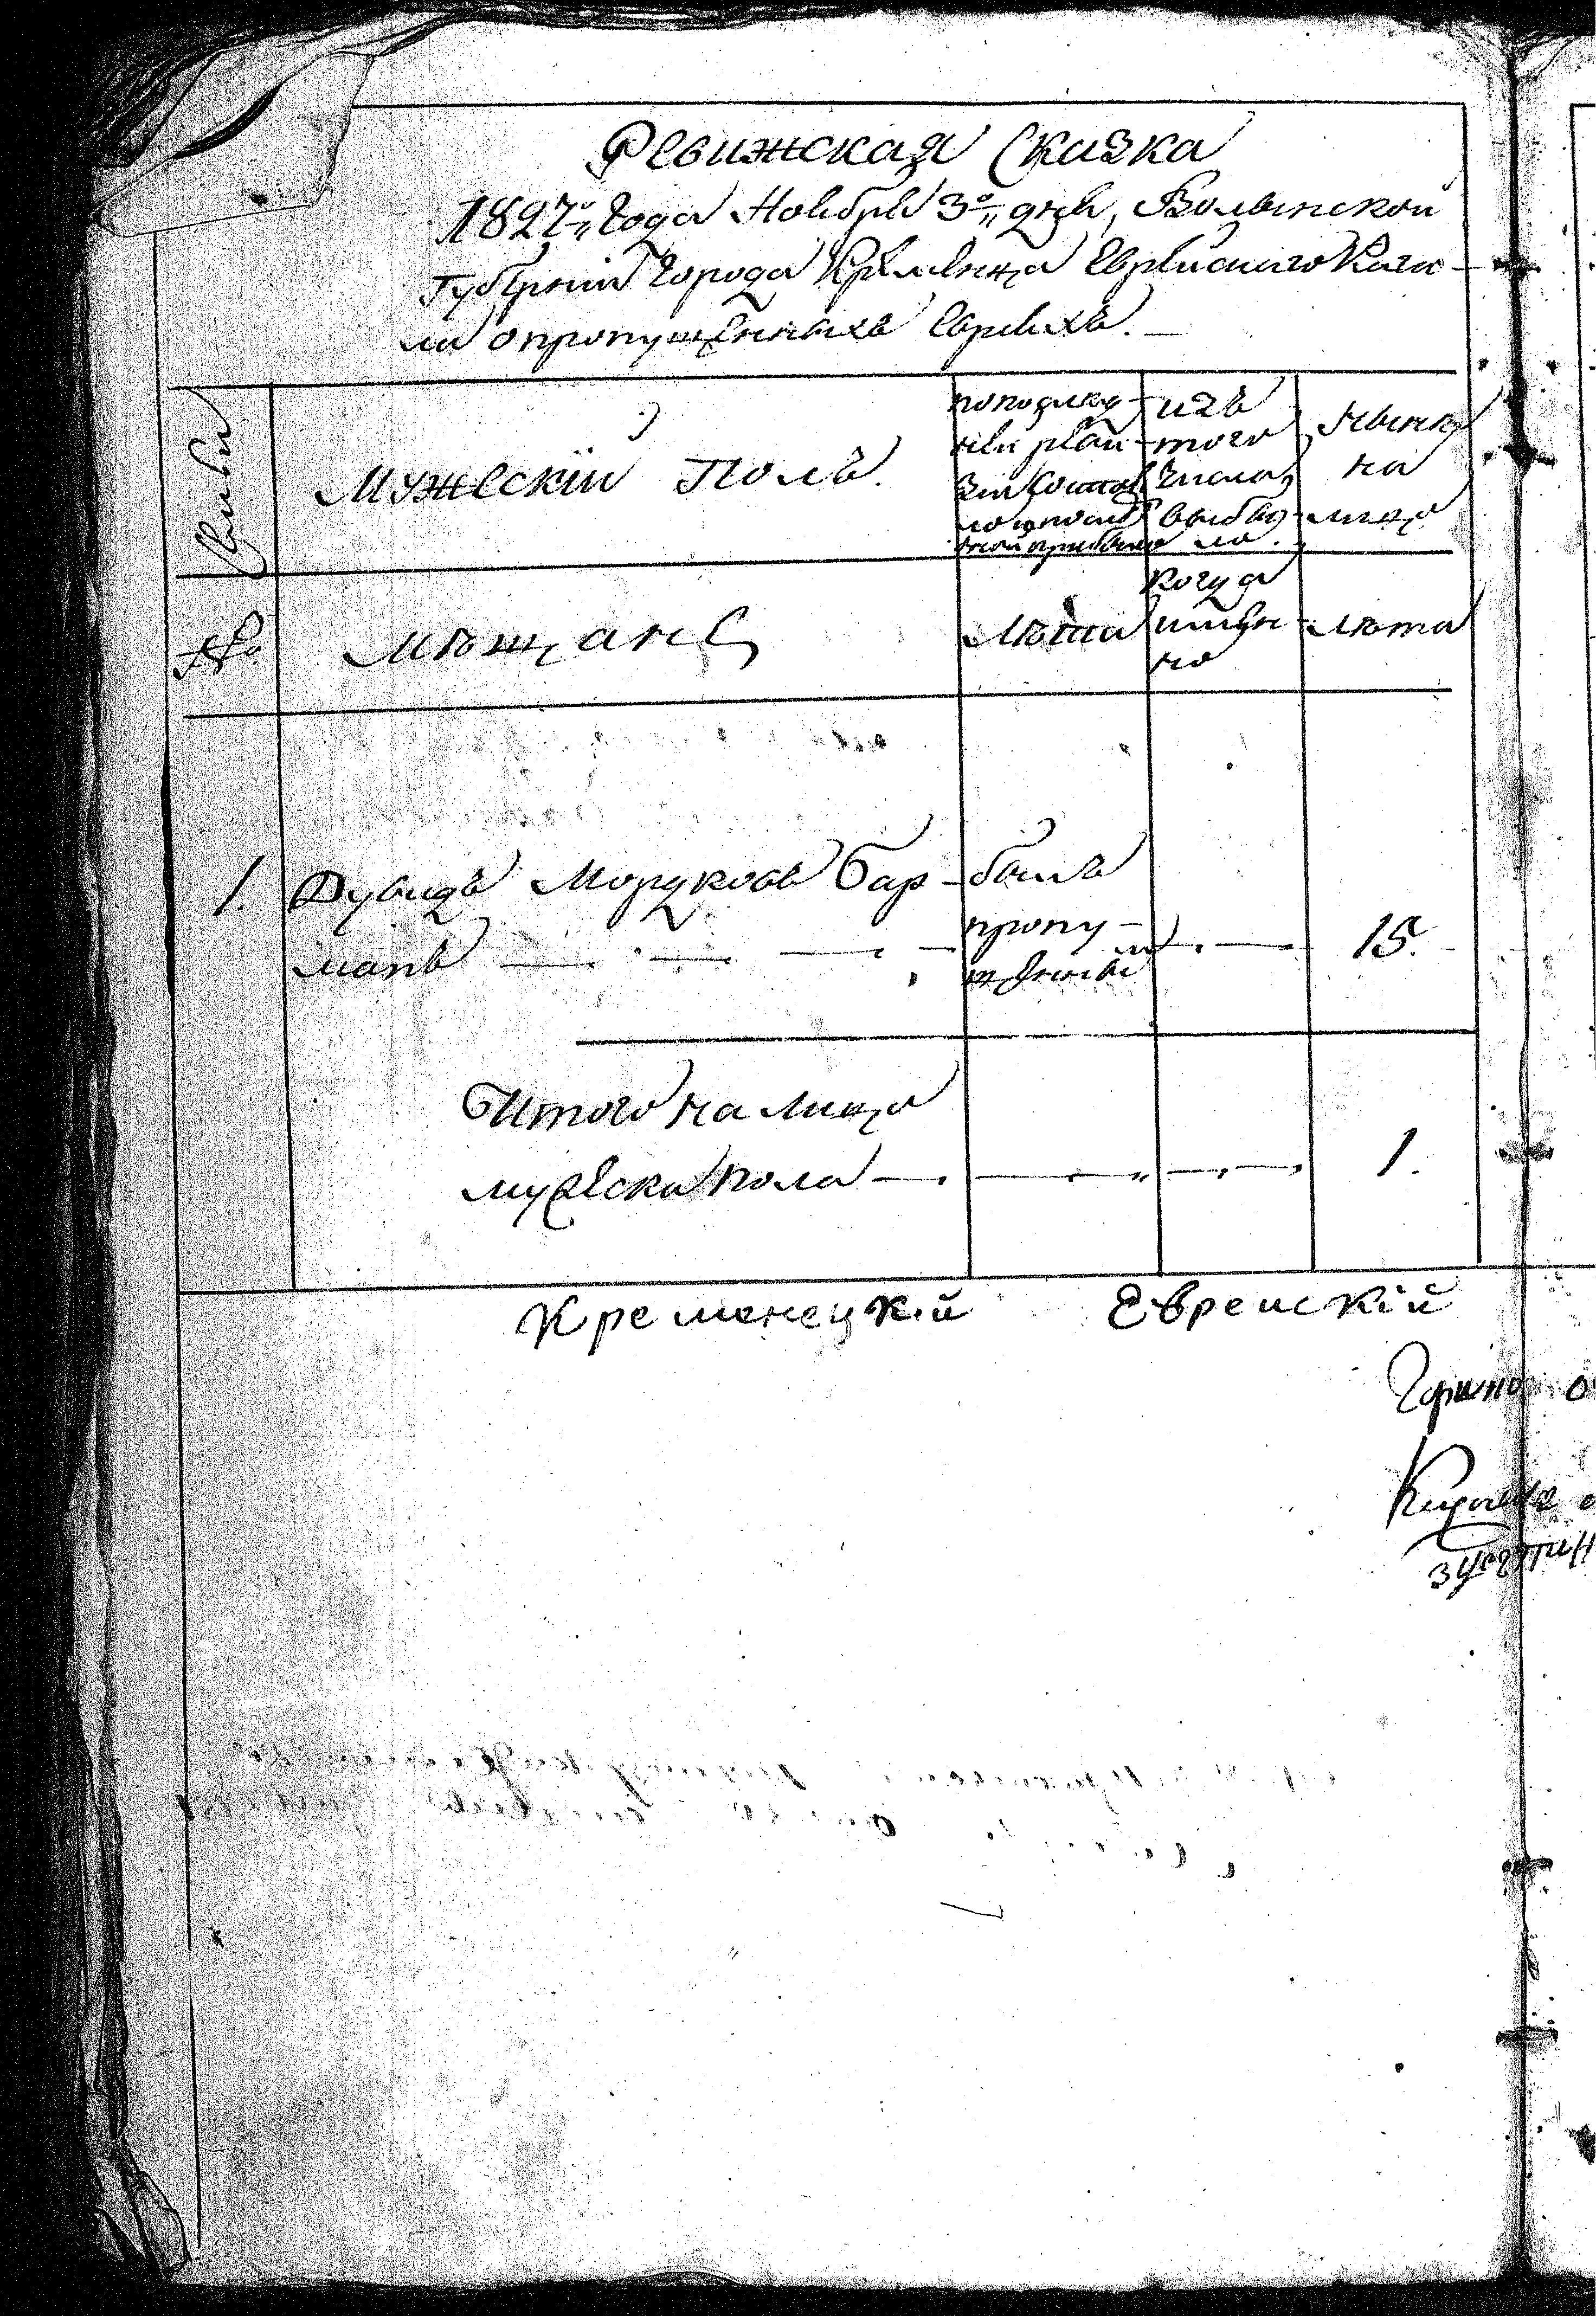 Ревижская Сказка
1827го Года Ноября 3го дня, Волынской
Губернии Города Кременца Еврейского Кага-
ла о пропущенныхъ Евреяхъ.
Семьи
Мужескій Полъ.
по последу-
ней реви-
зіи состоя
ло и после
оной прибыло
изъ
того
числа
выбы-
ло.
Нынѣ
на
лицо
№
мѣщане
Лѣта
когда
имян-
но
Лѣта
1. Дувидъ Мордковъ Бар-
манъ
былъ
пропу-
щенный
15.
Итого на лицо
мужеска пола
1.
Кременецкій Еврейскій